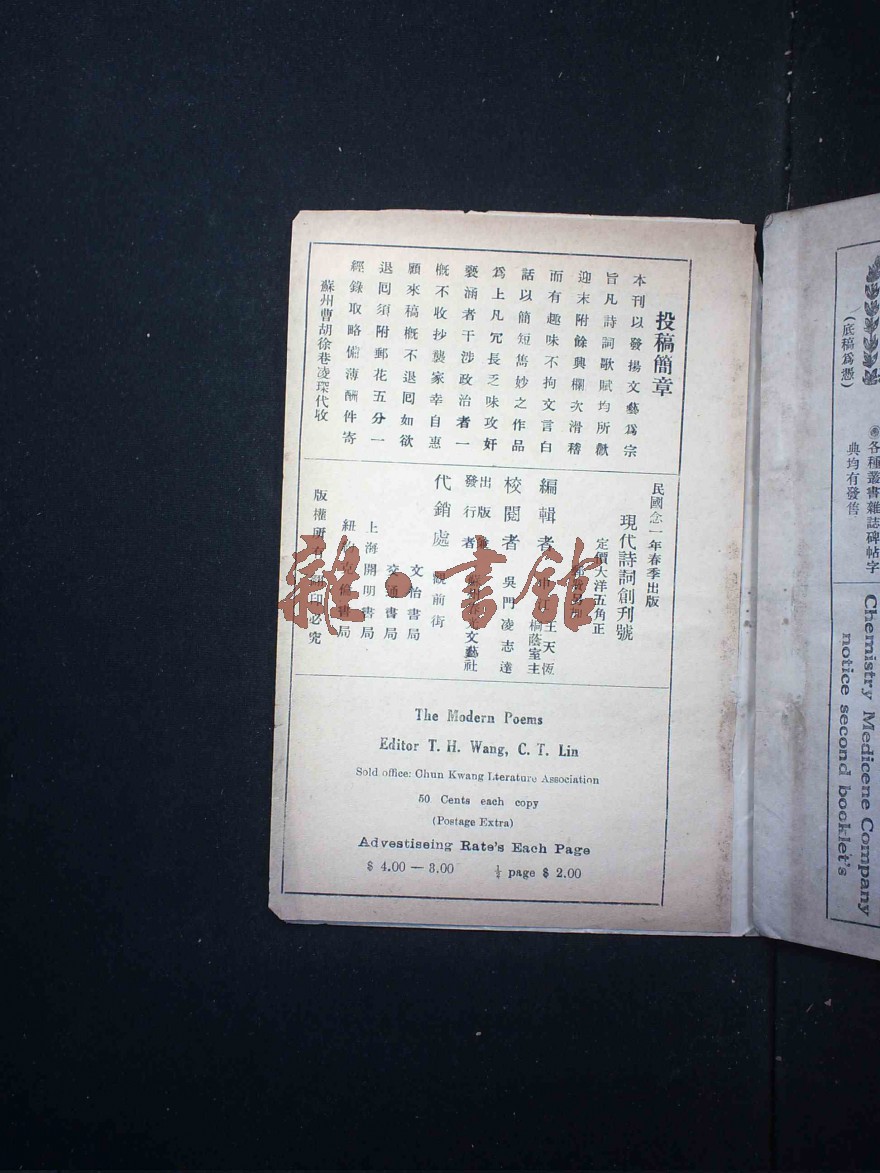 投稿簡章
本刊以發揚文藝爲宗
旨凡詩詞歌賦均所歡
迎末附餘興欄次滑稽
而有趣味不拘文言白
話以簡短雋妙之作品
爲上凡冗長乏味攻奸
褻涵者干涉政治者一
槪不收抄襲家幸自惠
顧來稿槪不退囘如欲
退囘須附郵花五分一
經錄取略備薄酬件寄
蘇州曹胡徐巷凌琛代收
民國念一年春季出版
現代詩詞創刊號
定價大洋五角正
編輯者 王天恆
桐蔭室主
校閱者 吳門凌志達
出版
發行者 文藝社
代銷處 觀前街
文怡書局
交通書局
上海開明書局
紐約 書局
版權所有翻印必究
The Modern Poems
Editor T. H. Wang, C. T. Lin
Sold office: Chun Kwang Lterature Association
50 Cents each copy
(Postage Extra)
Advestiseing Rate's Each Page
$ 4.00 — 3.00 ½ page $ 2.00
雜·書館
(底稿爲憑)
各種叢書雜誌碑帖字
典均有發售
Chemistry Medicene Company
notice second booklet's